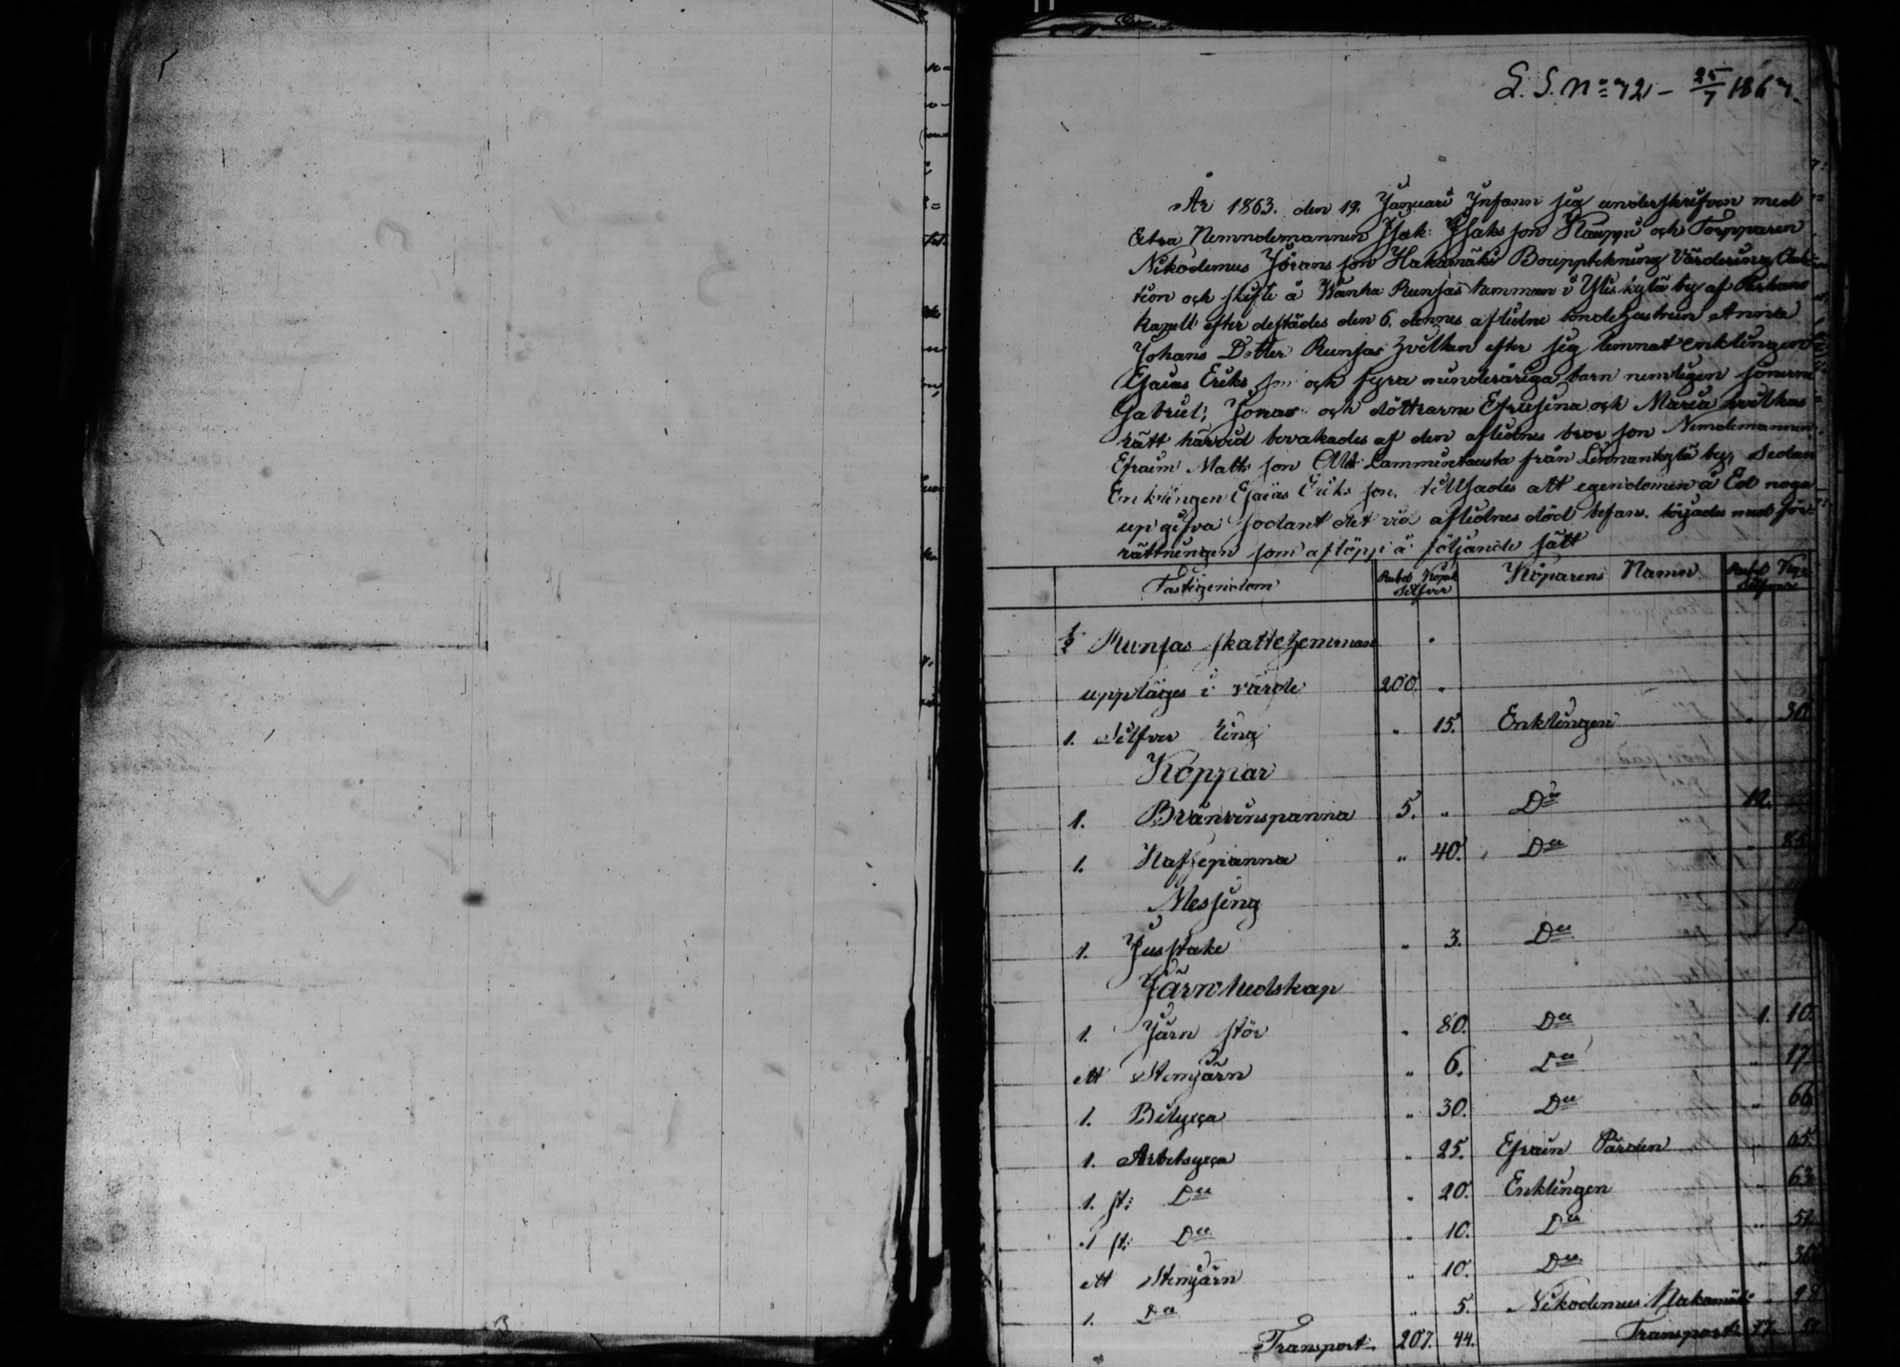 L. S. No 72 - 25/7 1867.
År 1863. den 19. Januari Infann sig underskrifven med
Extra Nemndemannen Isak Isaks son Kauppi och Torpparen
Nikodemus Jörans son Hakamäki Bouppteckning Värdering Auk
tion och skifte å Wanha Runsas hemman i Yliskylä by af
kapell efter destädes den 6. dennes aflidne bondehustrun Anna
Johans Dotter Runsas hvilken efter sig lemnat enklingen
Esaias Eriks son och fyra minderåriga barn nemligen sönerne
Gabriel, Jonas och döttrarne Efrosina och Maria hvilkas
rätt härvid bevakades af den aflidnes bror son Nemndemannen
Efraim Matts son Lammintausta från by, Sedan
Enklingen Esaias Eriks son tillsades att egendomen å Ed noga
upgifva sådant det vid aflidnes död befans. börjades med för
rättningen som aflöpp å följande sätt
Fastigendom Rubel Kopek Silfver Köparens Namn Rubel Kop Silfver
1/2 Runsas skattehemman
upptages i värde 200. "
1. Silfver ring " 15. Enklingen " 30
Koppar
1. Bränvinspanna 5. " Do 12.
1. Kaffepanna " 40. Do " 85
Messing
1. Jusstake " 3. Do
Järn Redskap
1. Järn stör " 80. Do 1. 10.
ett Stemjärn " 6. Do " 17
1. Bilyxa " 30. Do " 66
1. Arbetsyxa " 25. Efraim Pärden " 65.
1. st: Do " 20. Enklingen " 63
1 st: Do " 10. Do " 51
ett Stemjärn " 10. Do "
1. Do " 5. Nikodemus Hakamäki "
Transport 207. 44. Transport 17.